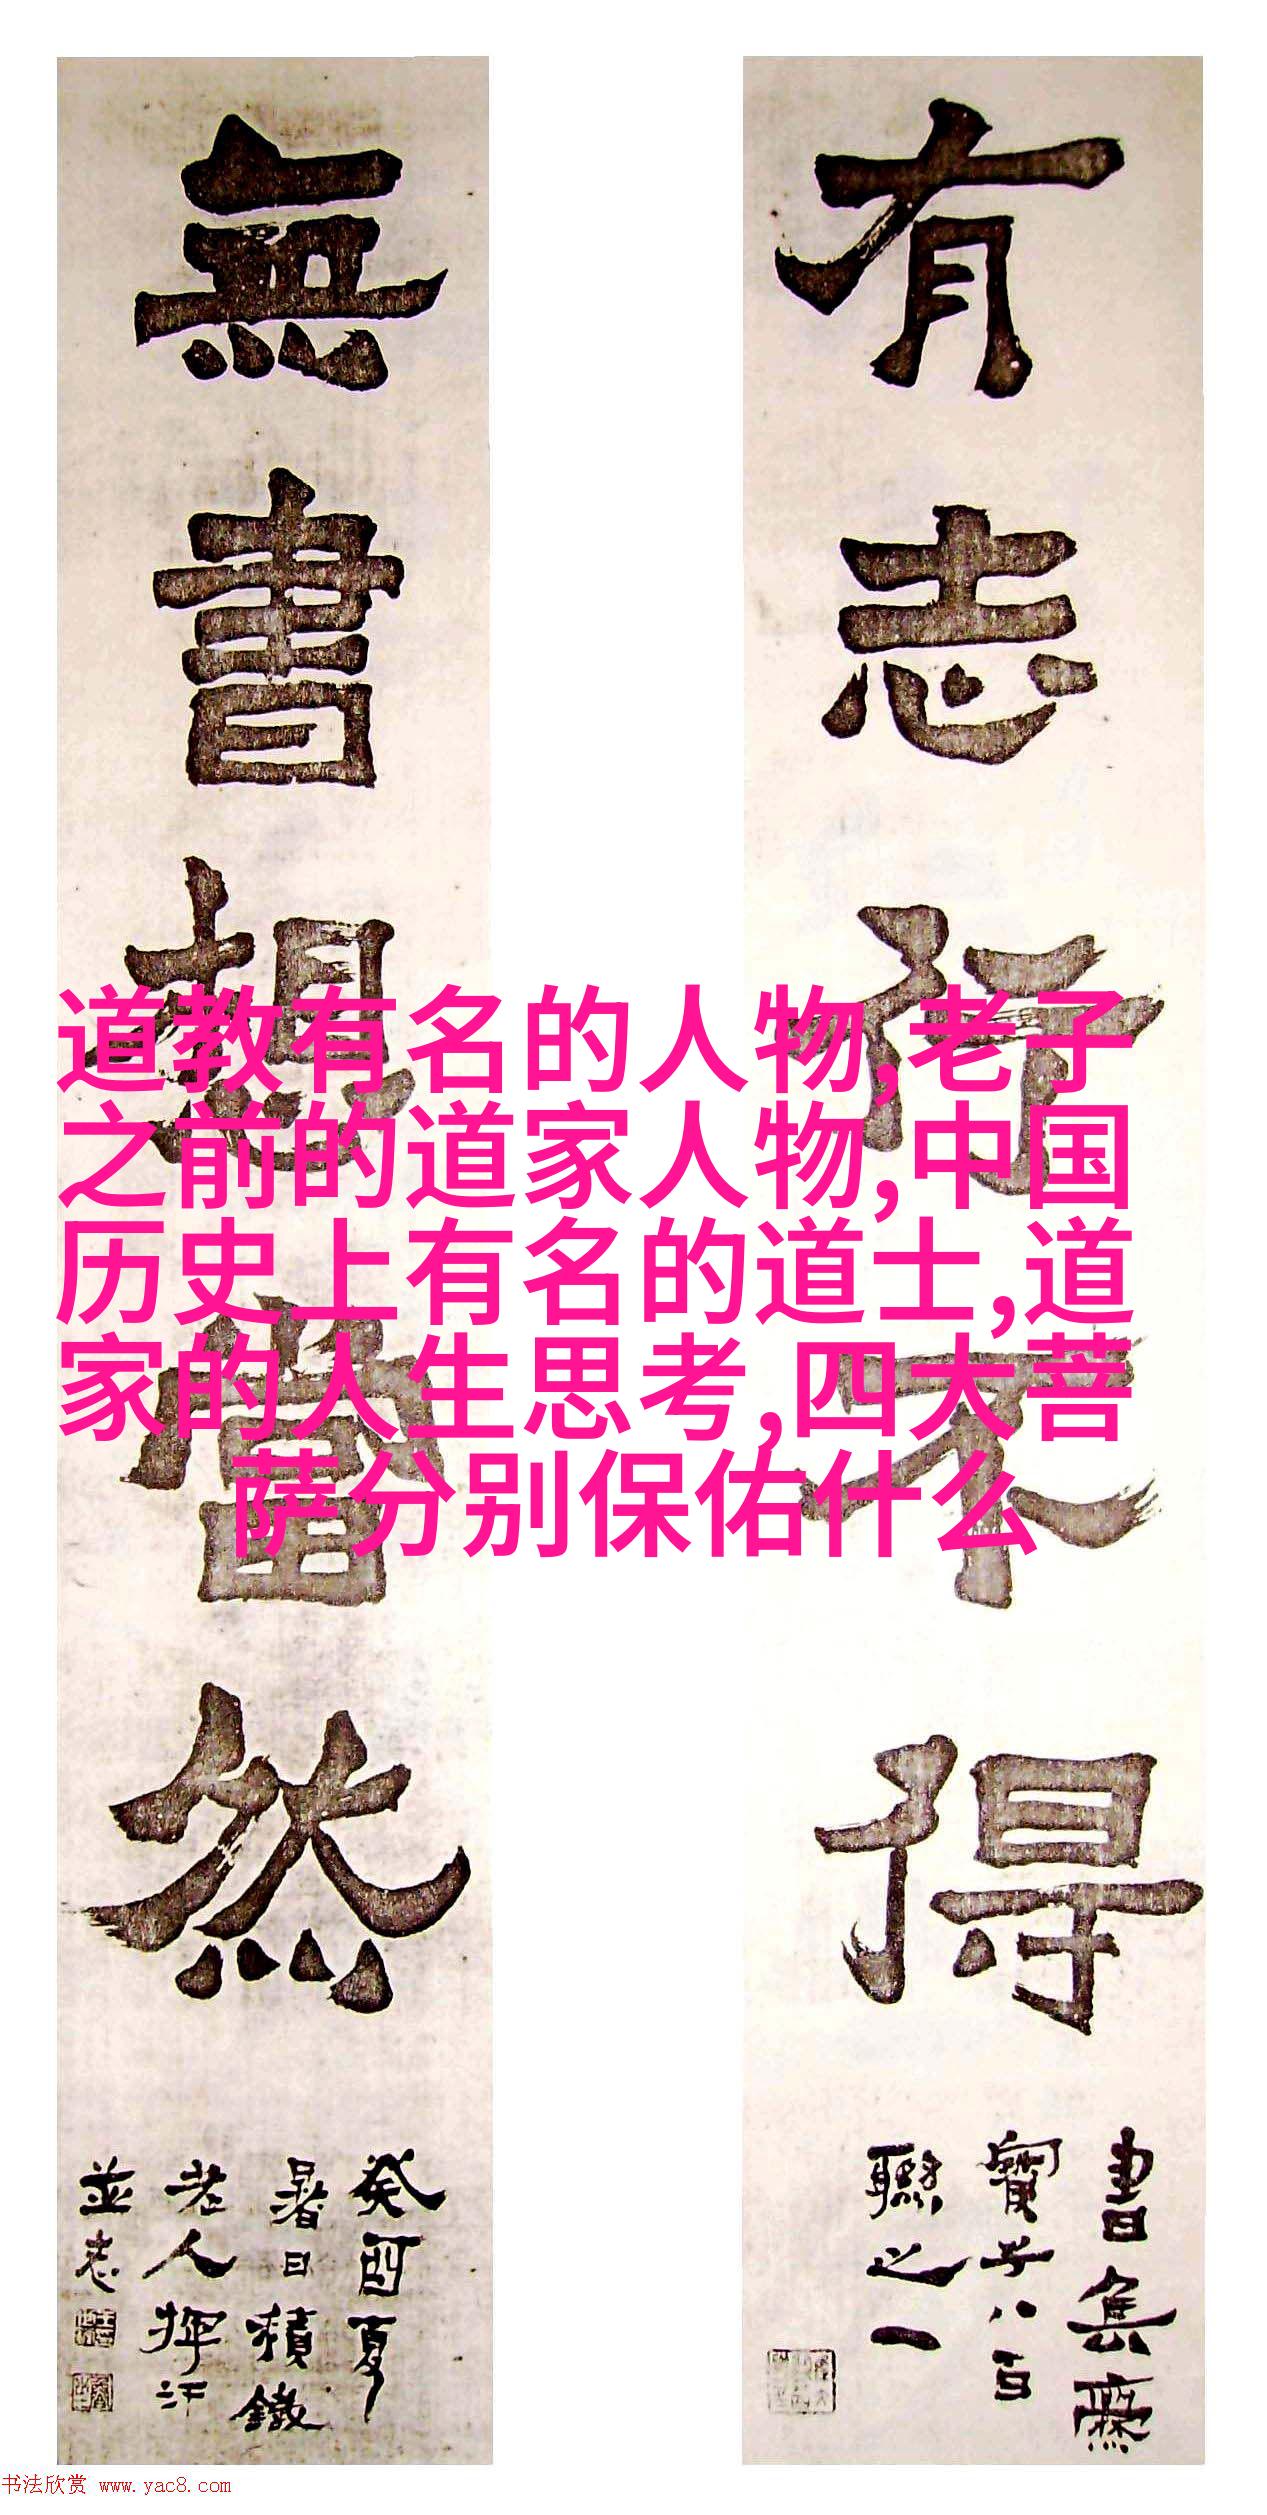 有志行不得
書集齋
寶子八百
聯之一
無書想當然
癸酉夏
暑日積鐵
老人揮汗
並志
道教有名的人物,老子
之前的道家人物,中国
历史上有名的道士,道
家的人生思考,四大菩
萨分别保佑什么
书法欣赏 www.yac8.com